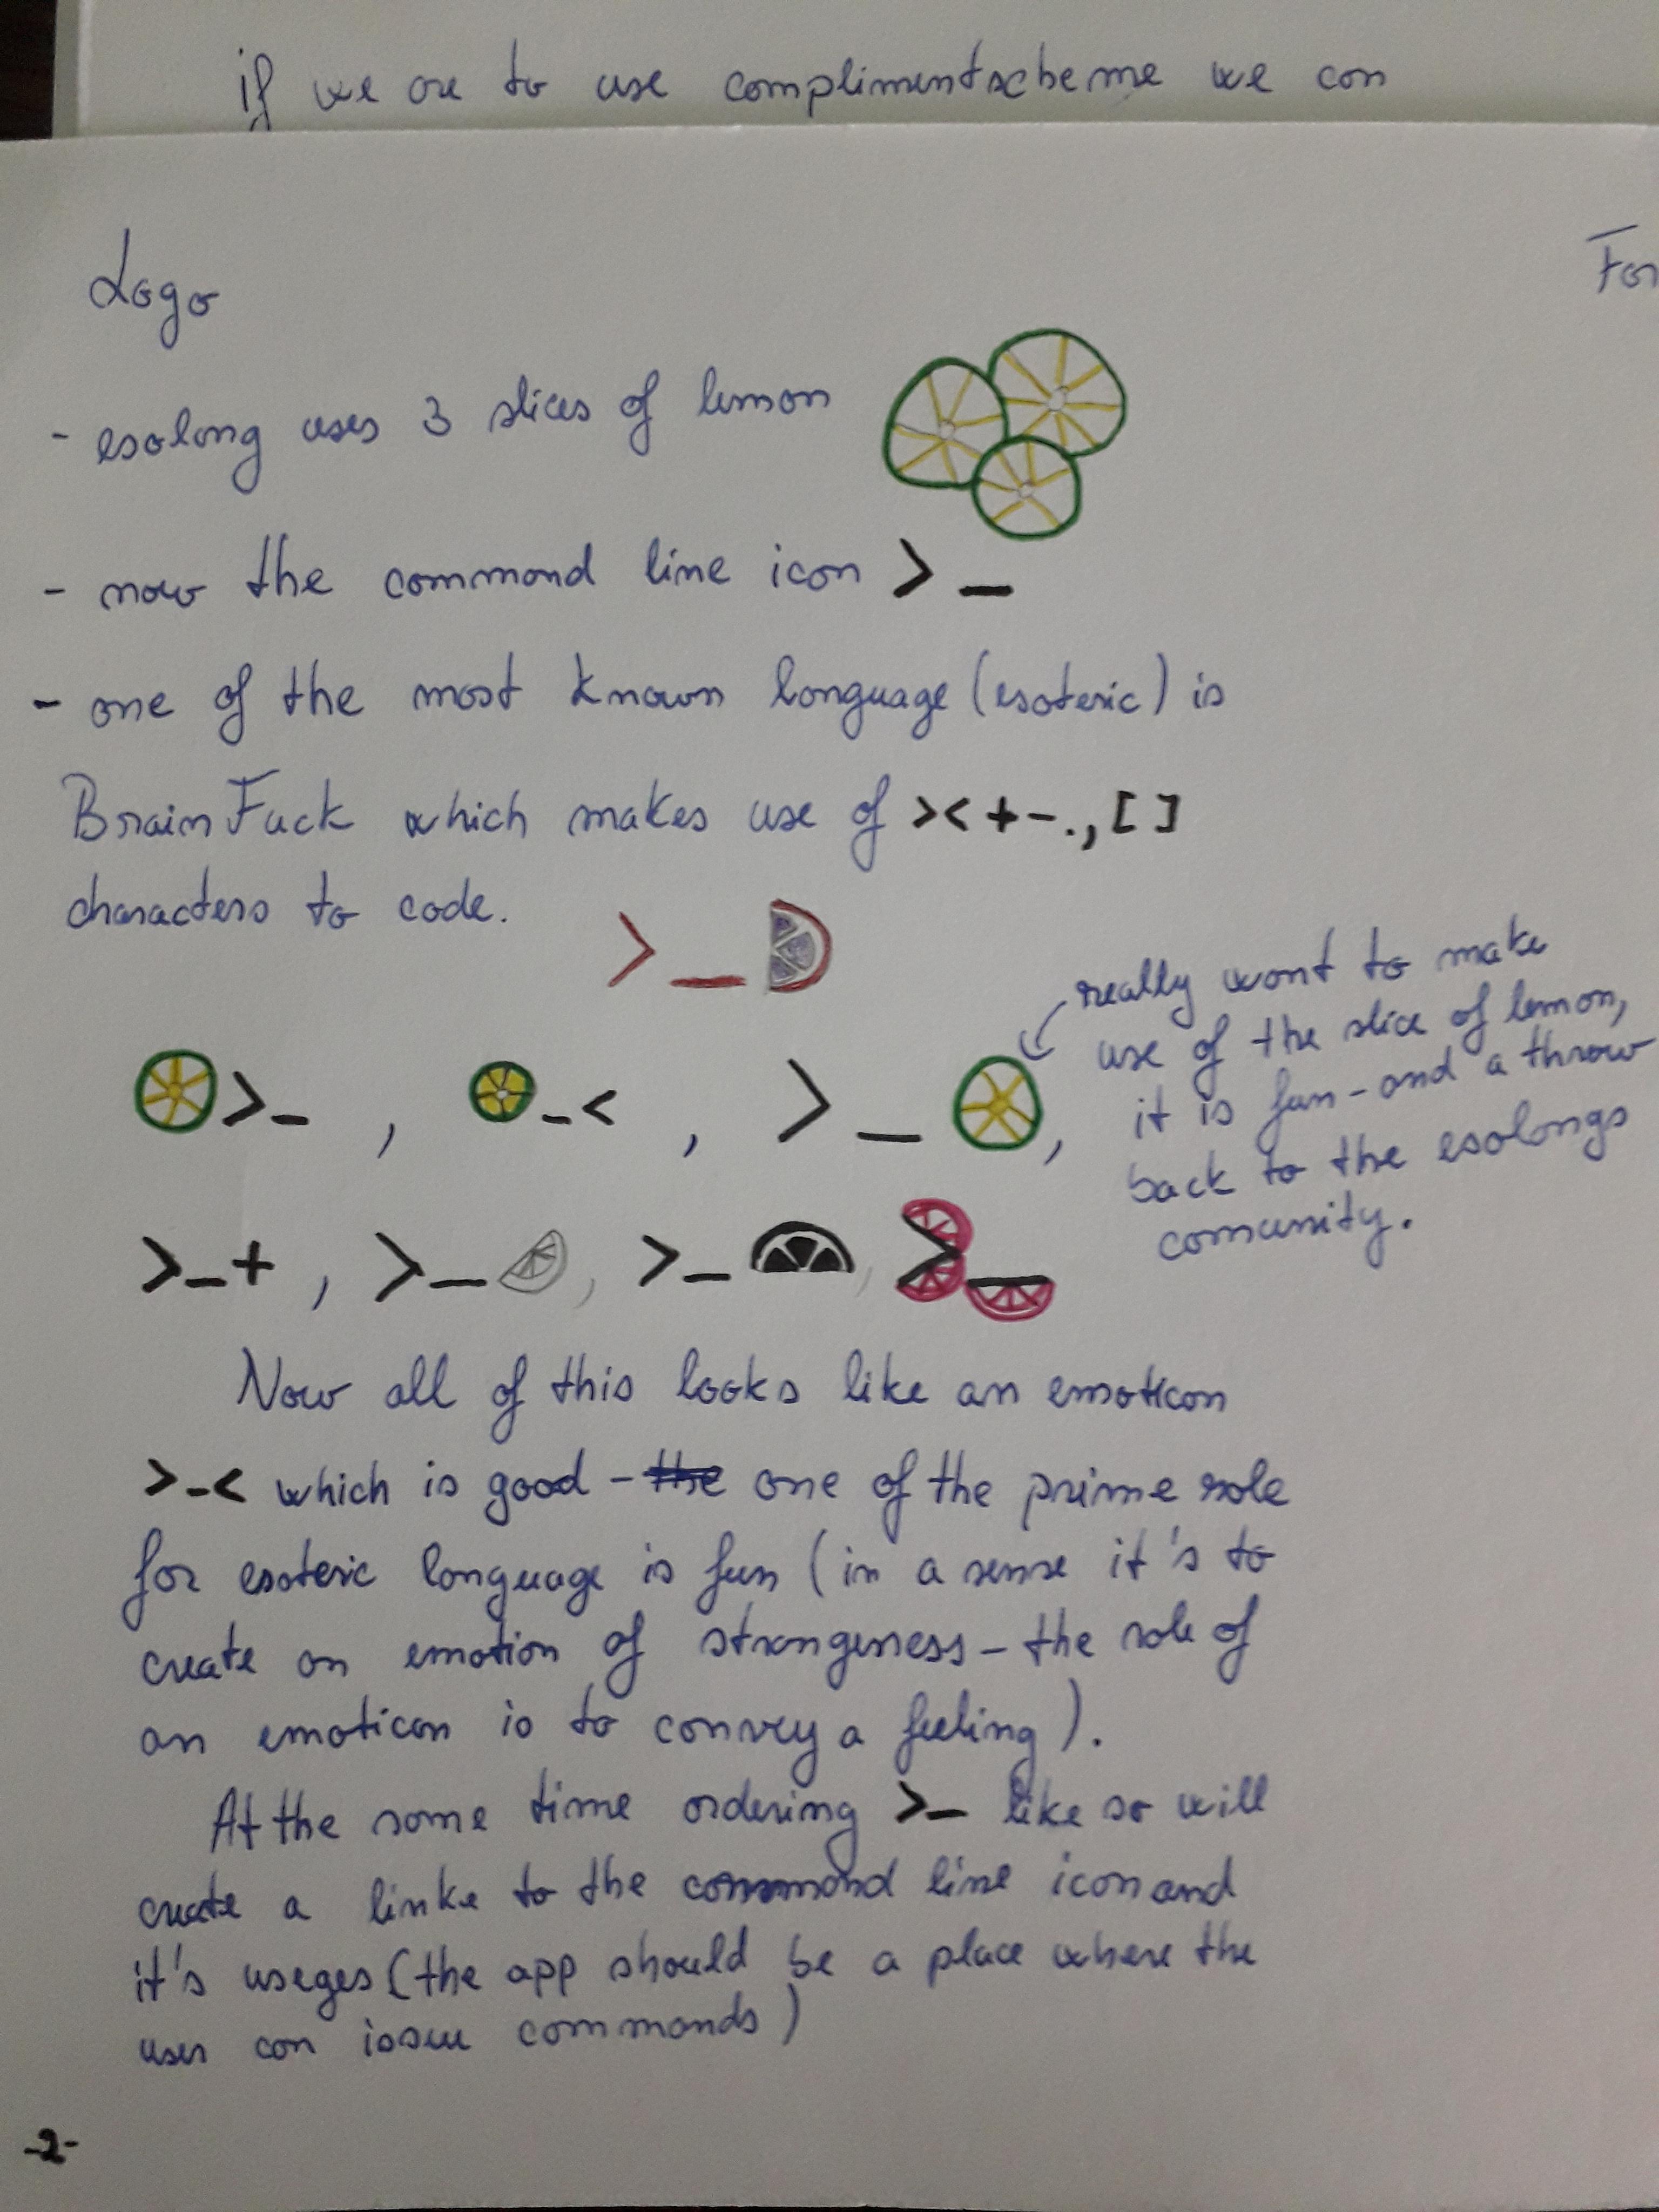 if we are to use complimentscheme we can
Logo
For
- esolang uses 3 slices of lemon
- now the command line icon >_
- one of the most known language (esoteric) is
BrainFuck which makes use of ><+-.,[]
characters to code.
>_
>_ , _< , >_ ,
really want to make
use of the slice of lemon,
it is fun - and a throw
back to the esolangs
comunity.
>_+ , >_ , >_ , >_
Now all of this looks like an emoticon
>-< which is good - the one of the prime role
for esoteric language is fun (in a sense it's to
create an emotion of strangeness - the role of
an emoticon is to convey a feeling).
At the same time ordering >_ like so will
create a linke to the command line icon and
it's useges (the app should be a place where the
user can issue commands)
-2-